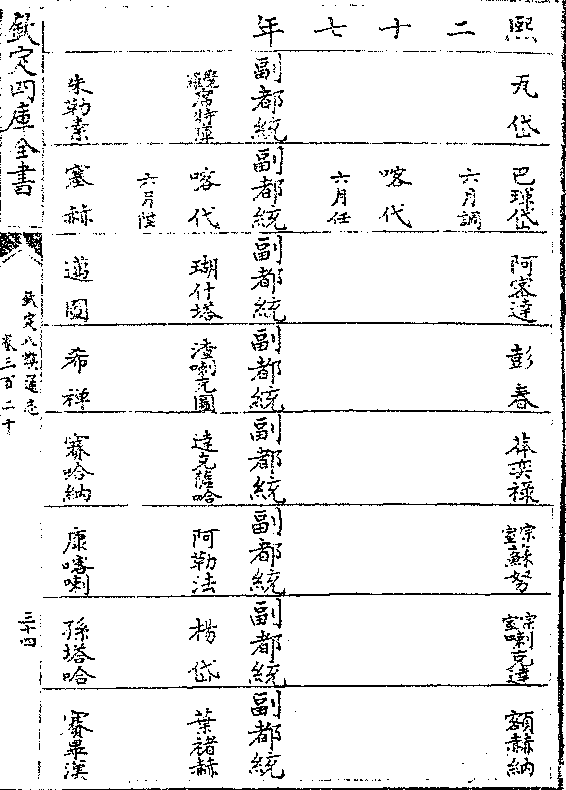 熙二十七年
瓦岱
副都統
覺羅席特庫
朱勒素
巴琿岱
六月調
喀代
六月任
副都統
喀代
六月陞
塞赫
阿密達
副都統
瑚什塔
邁圖
彭春
副都統
渣喇克圖
希禪
莽奕祿
副都統
達克薩哈
賽哈納
宗室蘇努
副都統
阿勒法
康喀喇
宗室喇克達
副都統
楊岱
孫塔哈
額赫納
副都統
葉禇赫
賽畢漢
欽定四庫全書
欽定八旗通志
卷三百二十
三十四